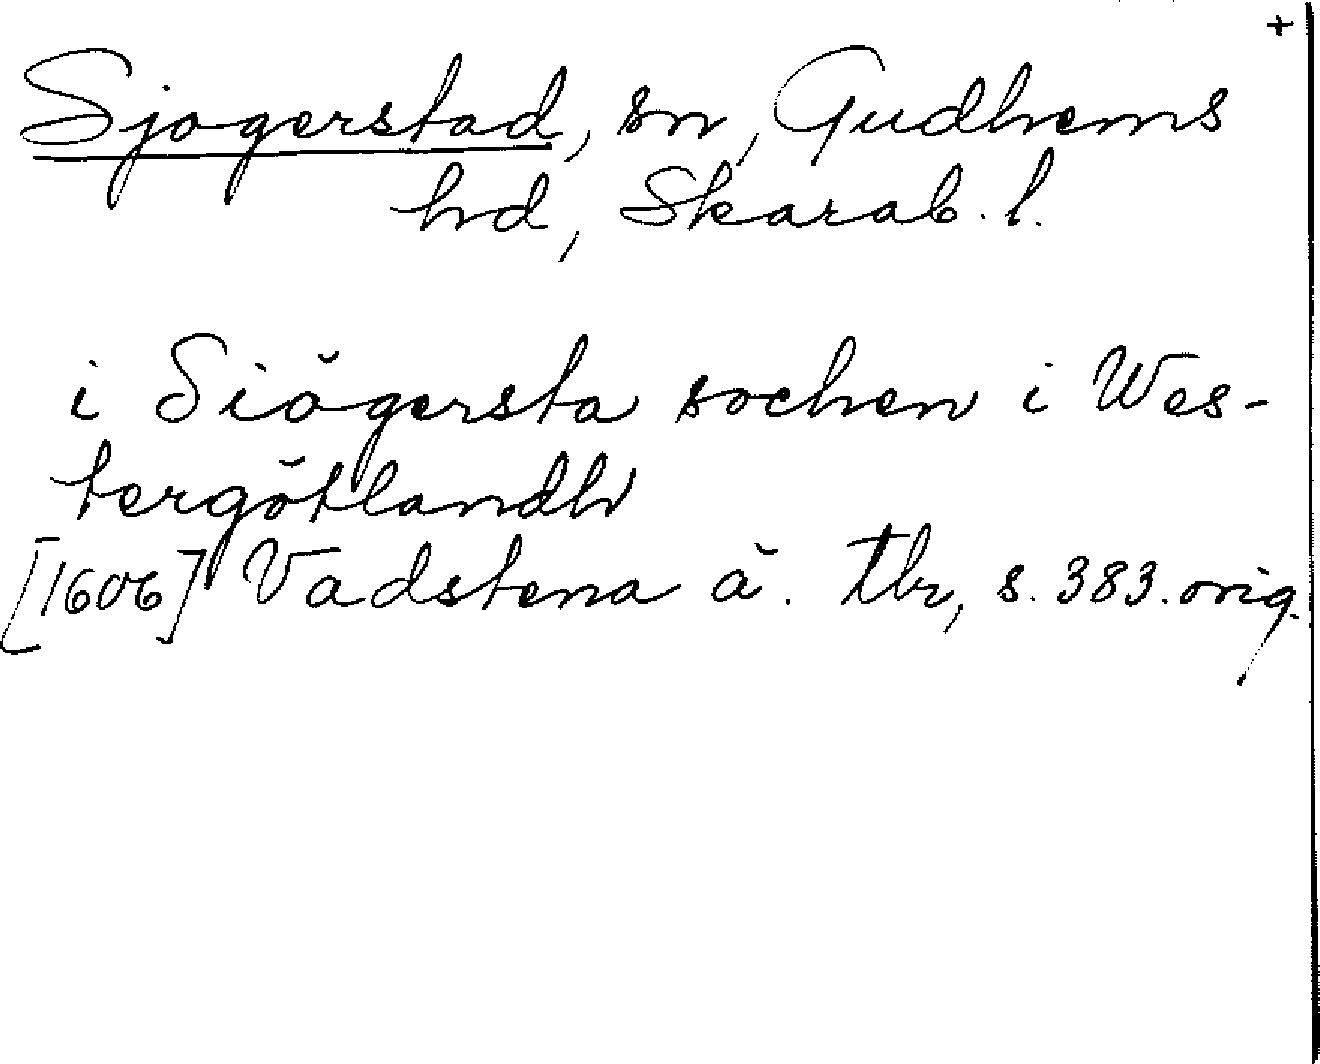 +
Sjogerstad, sn, Gudhems
hd, Skarab. l.
i Siögersta sochen i Wes-
tergötlandh
[1606] Vadstena ä. tbr, s. 383. orig.